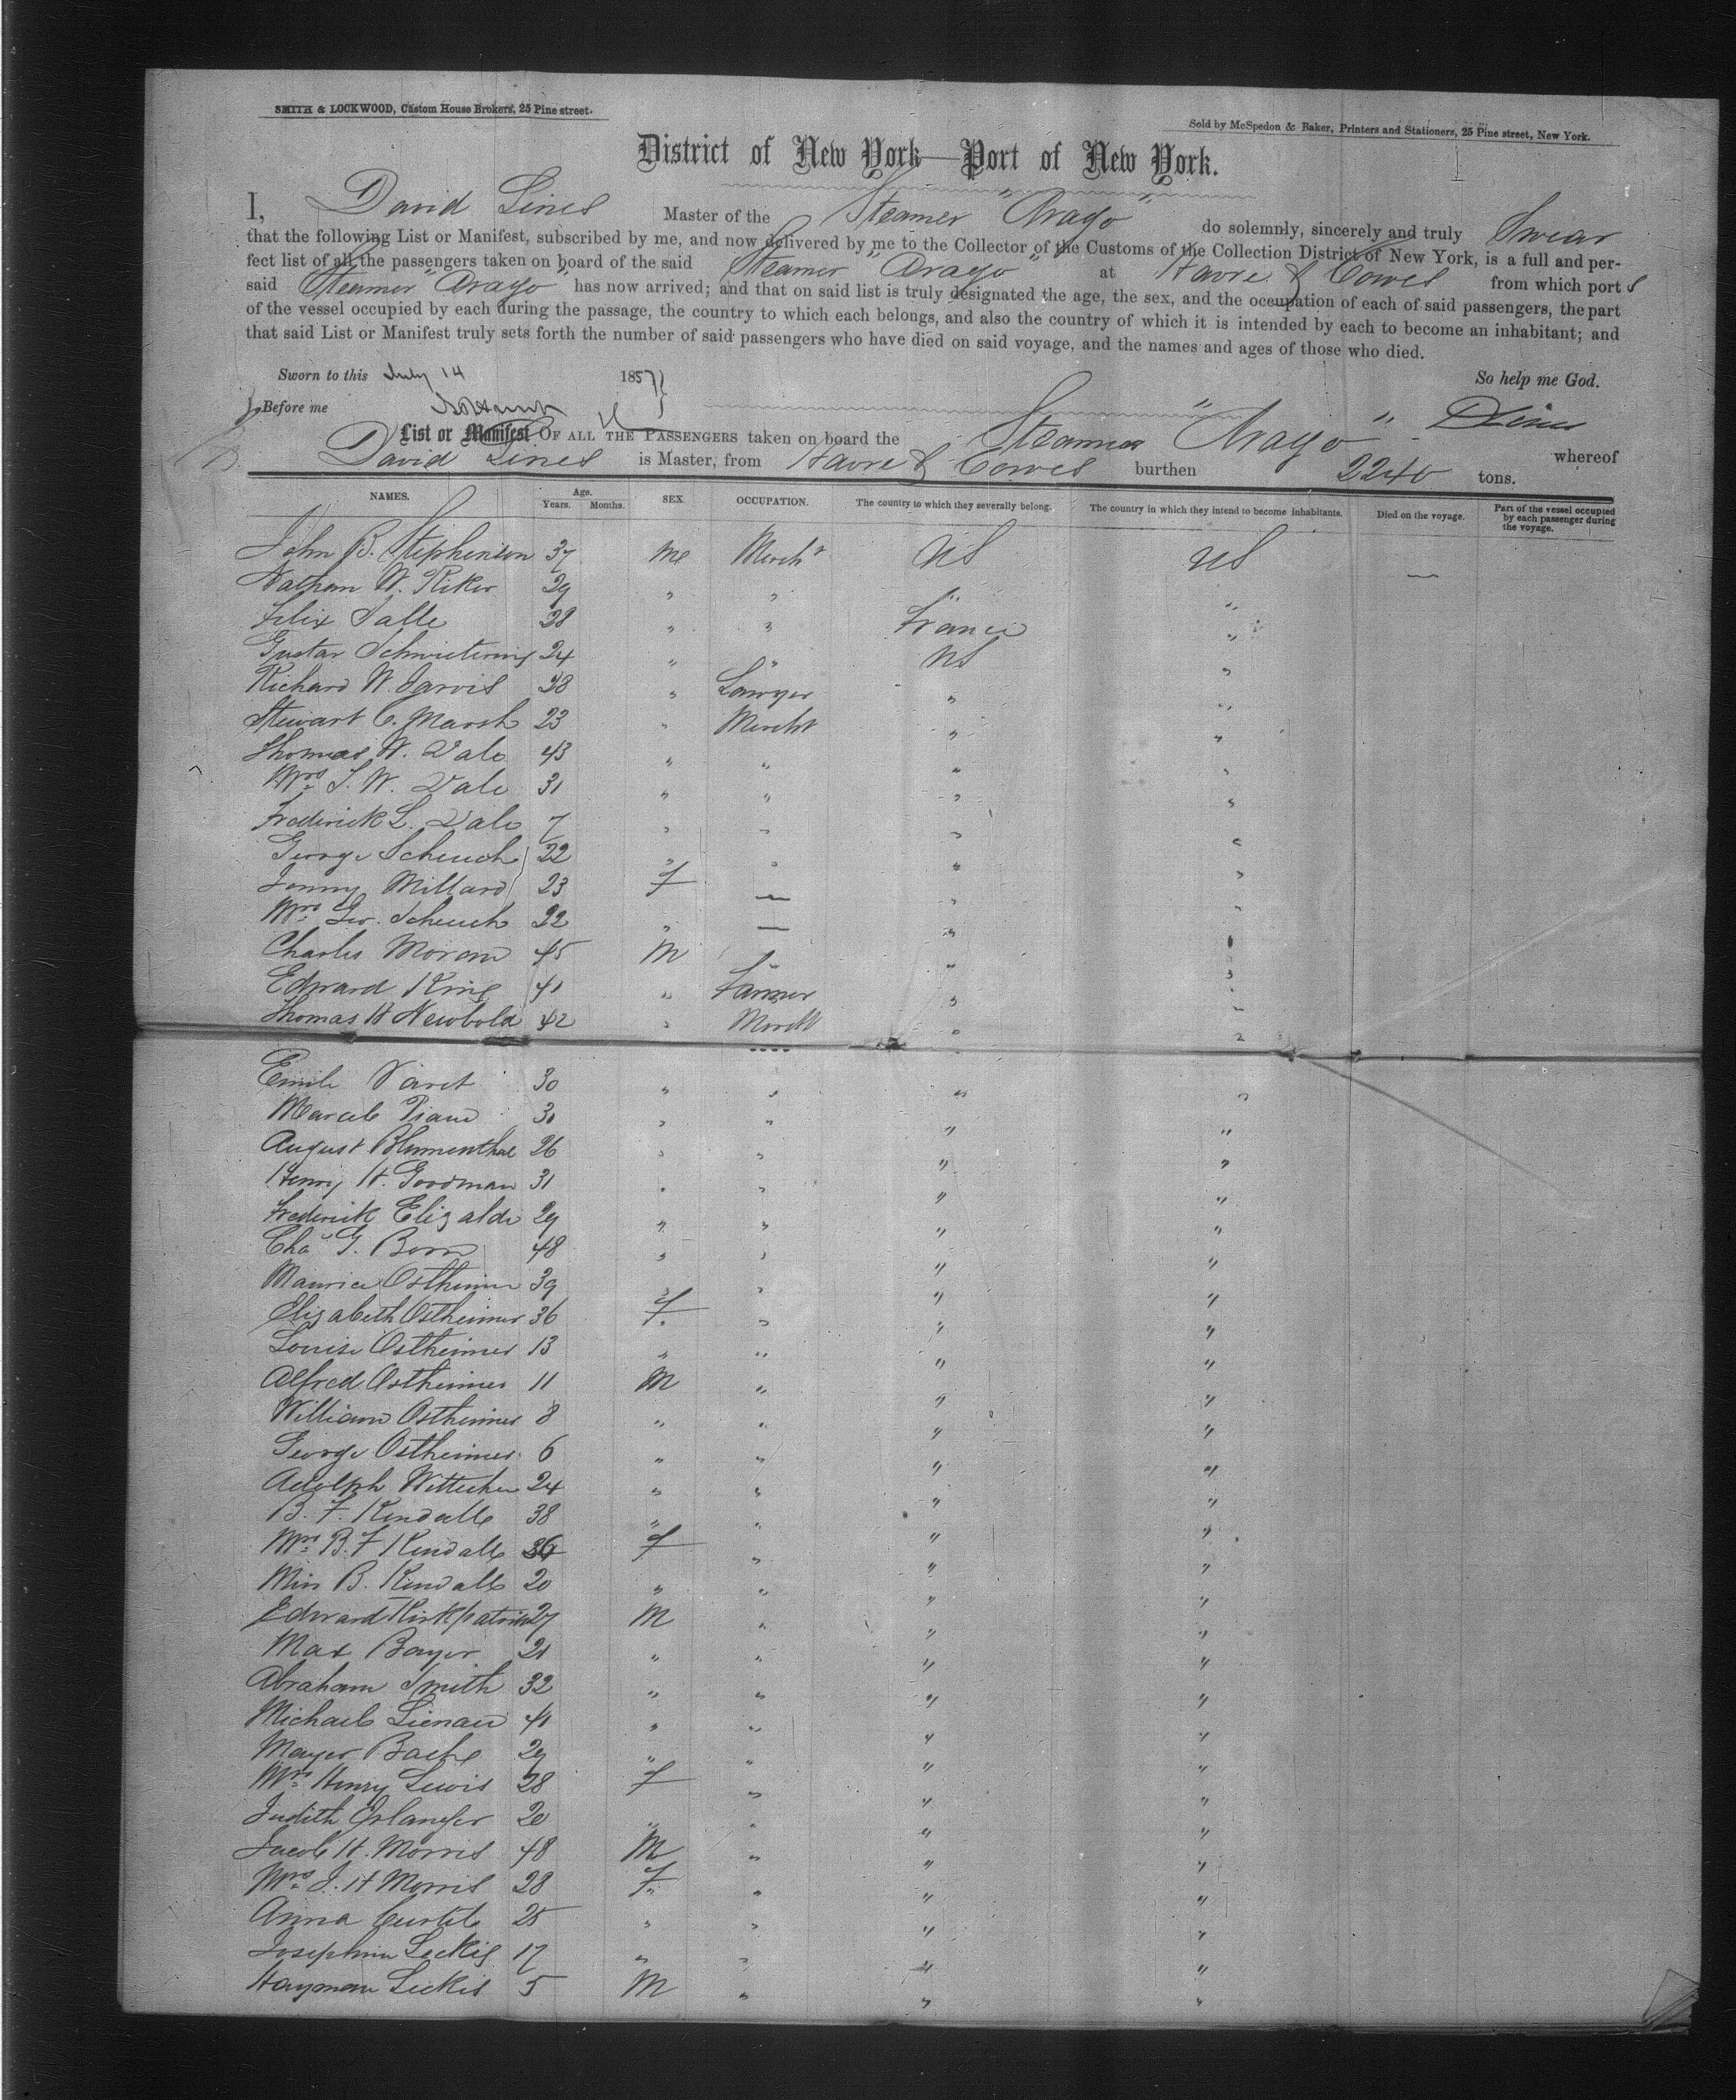 SMITH & LOCKWOOD, Custom House Brokers, 25 Pine street.
Sold by McSpedon & Baker, Printers and Stationers, 25 Pine street, New York.
District of New York—Port of New York.
I, David Lines Master of the Steamer "Arago" do solemnly, sincerely and truly Swear
that the following List or Manifest, subscribed by me, and now delivered by me to the Collector of the Customs of the Collection District of New York, is a full and per-
fect list of all the passengers taken on board of the said Steamer "Arago" at Havre & Cowes from which ports
said Steamer "Arago" has now arrived; and that on said list is truly designated the age, the sex, and the occupation of each of said passengers, the part
of the vessel occupied by each during the passage, the country to which each belongs, and also the country of which it is intended by each to become an inhabitant; and
that said List or Manifest truly sets forth the number of said passengers who have died on said voyage, and the names and ages of those who died.
Sworn to this July 14 1857 So help me God.
Before me D Lines
List or Manifest OF ALL THE PASSENGERS taken on board the Steamer "Arago" whereof
David Lines is Master, from Havre & Cowes burthen 2240 tons.
NAMES. Age. Years. Months. SEX. OCCUPATION. The country to which they severally belong. The country in which they intend to become inhabitants. Died on the voyage. Part of the vessel occupied by each passenger during the voyage.
John B. Stephenson 37 Me Mercht US US —
Nathan W. Riker 29 " " " "
Felix Salle 28 " " France "
Gustav Schwietering 24 " " US "
Richard W. Jarvis 28 " Lawyer " "
Stewart C. Marsh 23 " Mercht " "
Thomas W. Dale 43 " " " "
Mrs T. W. Dale 31 " " " "
Frederick L. Dale 7 " " " "
George Scheuch 22 " " " "
Jenny Millard 23 f — " "
Mrs Geo. Scheuch 22 " — " "
Charles Moran 45 M " " "
Edward King 41 " Farmer " "
Thomas H Newbold 42 " Mercht " "
Emile Varet 30 " " " "
Marcel 30 " " " "
August Blumenthal 26 " " " "
Henry H. Goodman 31 " " " "
Frederick Elizalde 29 " " " "
Chas G. Born 48 " " " "
Maurice Ostheimer 39 " " " "
Elizabeth Ostheimer 36 f " " "
Louise Ostheimer 13 " " " "
Alfred Ostheimer 11 M " " "
William Ostheimer 8 " " " "
George Ostheimer 6 " " " "
Adolph 24 " " " "
B. F. Kendall 38 " " " "
Mrs B. F Kendall 36 f " " "
Miss B. Kendall 20 " " " "
Edward Kirkpatrick 27 M " " "
Max Bayer 21 " " " "
Abraham Smith 32 " " " "
Michael Lienau 41 " " " "
Mayer Bache 29 " " " "
Mrs Henry Lewis 28 f " " "
Judith Erlanger 20 " " " "
Jacob H. Morris 48 M " " "
Mrs J. H Morris 28 f " " "
Anna Curtil 25 " " " "
Josephine Leckis 17 " " " "
Hayman Leckis 5 M " " "